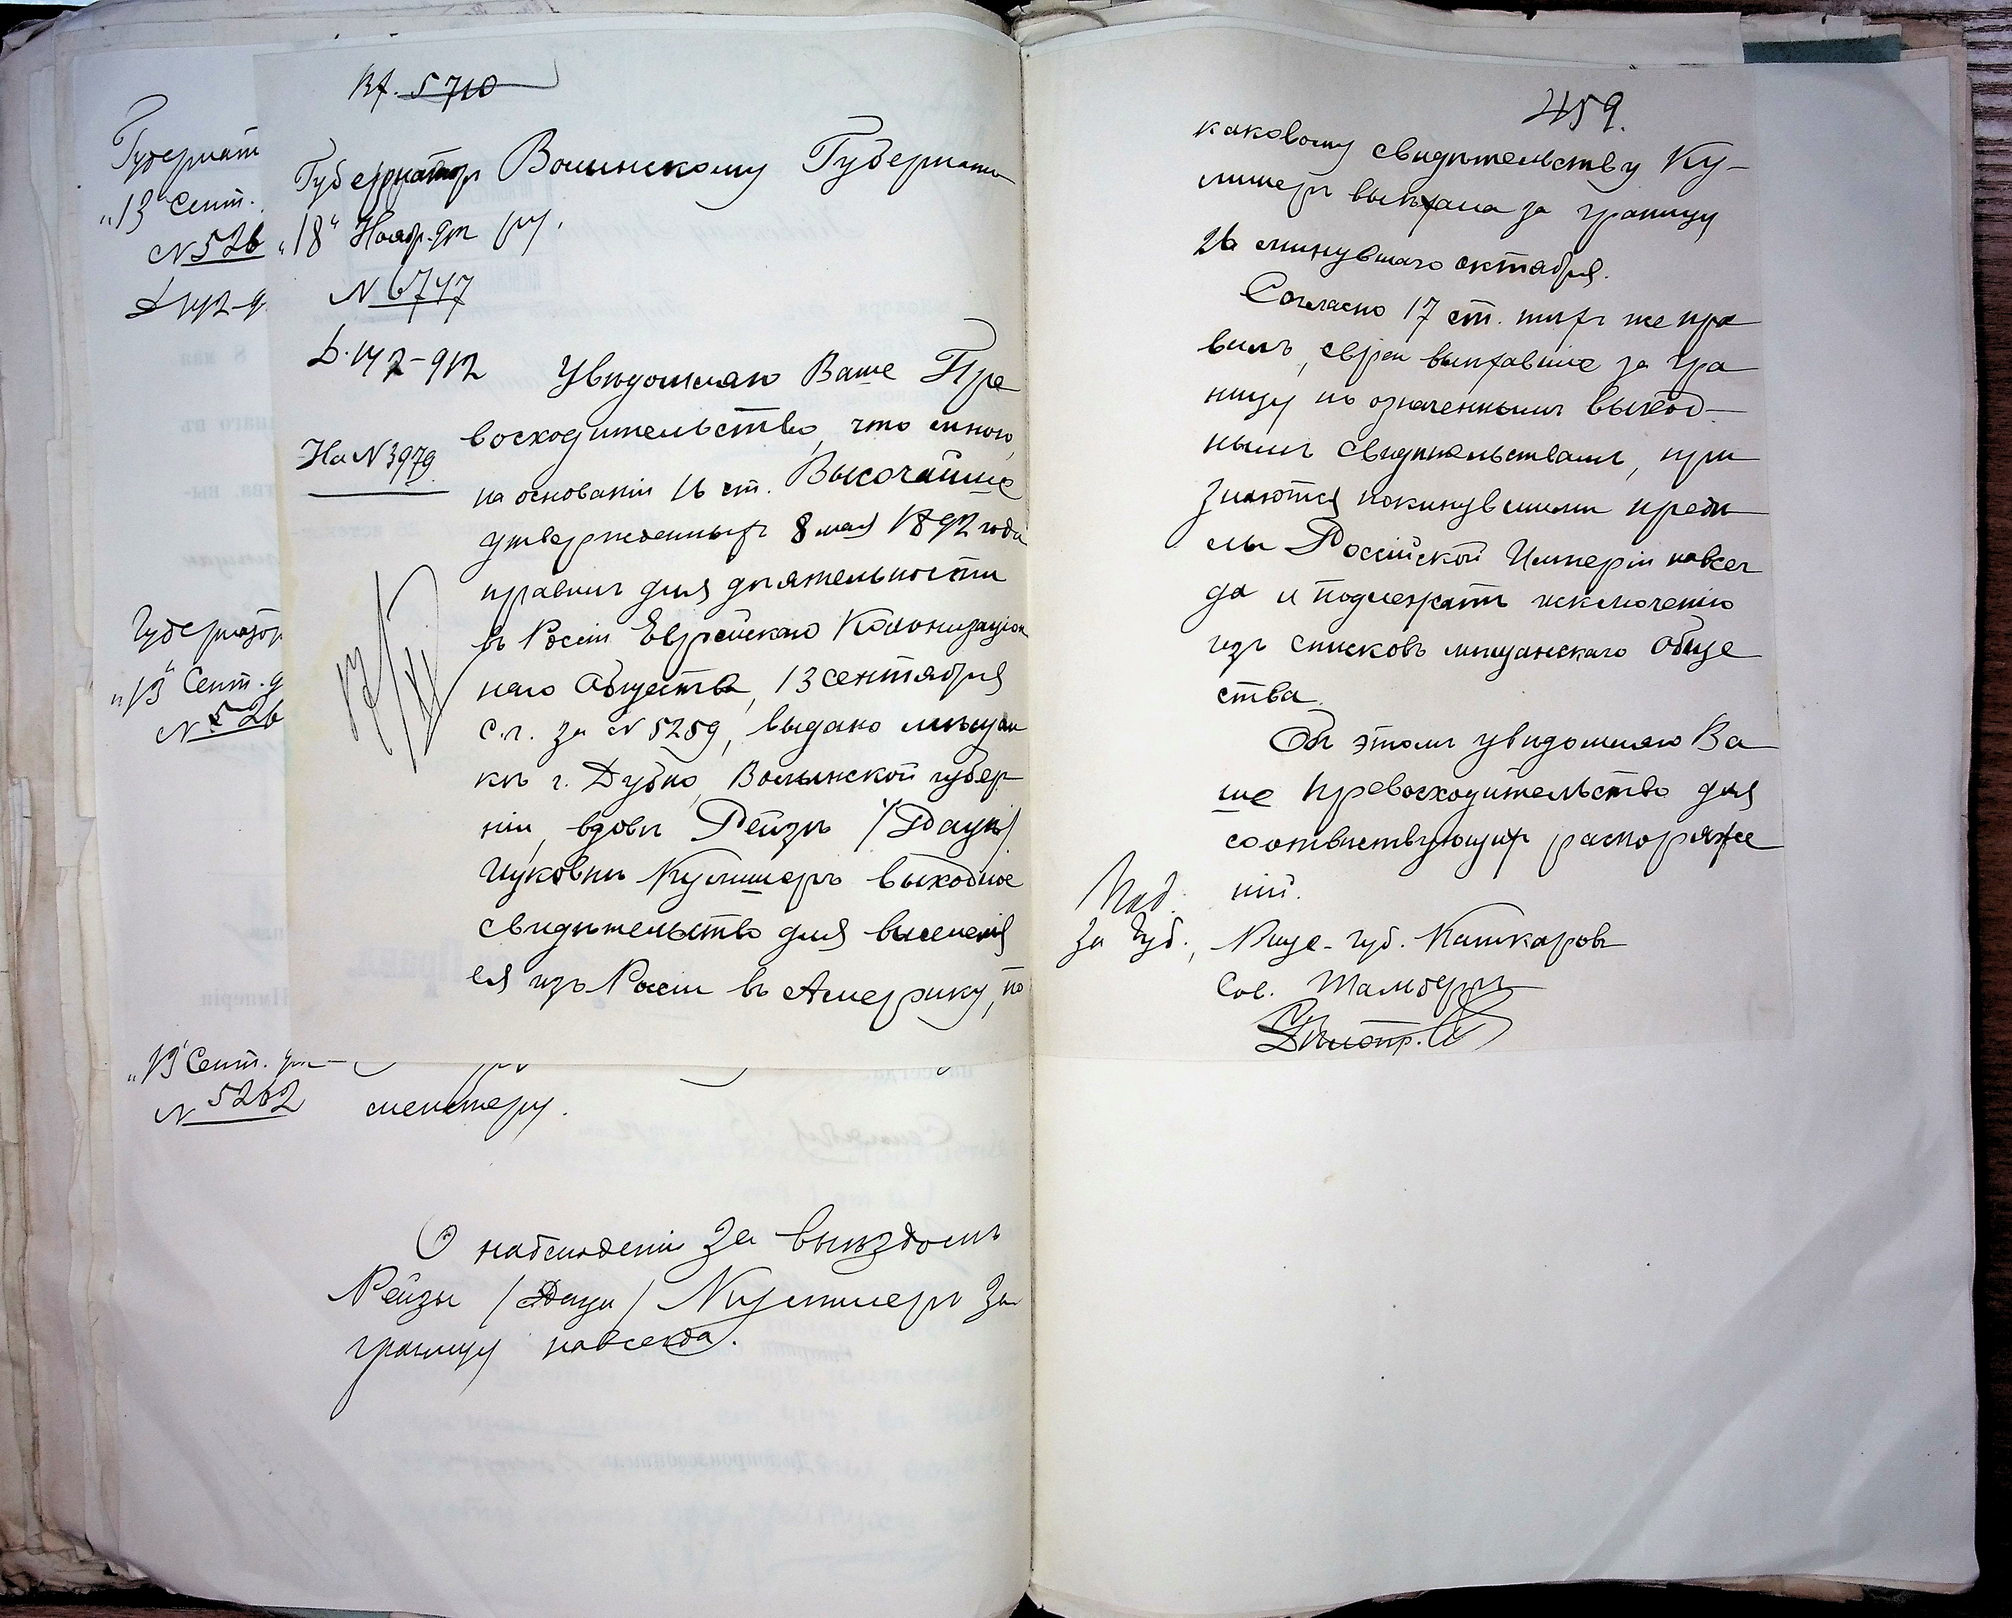 Вх. 5710
Губернат
"13" Сент.
N 526
Губернаторъ Волынскому Губернато
"18" Ноябр. 912 ру.
N 6747
Д. 142-912
На N 3979
Увѣдомляю Ваше Пре
восходительство, что мною,
на основаніи 16 ст. Высочайше
утвержденныхъ 8 мая 1892 года
правилъ для дѣятельности
въ Россіи Еврейскаго Колонизаціон
наго Общества, 13 сентября
с.г. за N 5259, выдано мѣщан
кѣ г. Дубно, Волынской губер
ніи, вдовѣ Рейзѣ (Дацѣ)
Ицковнѣ Кулишеръ выходное
свидѣтельство для выселенія
ея изъ Россіи въ Америку, по
17/XI
Губернатор
"13" Сент. 9
N 526
"13" Сент. 912
N 5262
О наблюденіи за выѣздомъ
Рейзы (Даци) Кулишеръ за
границу навсегда.
459.
каковому свидѣтельству Ку-
лишеръ выѣхала за границу
26 минувшаго октября.
Согласно 17 ст. тѣхъ же пра
вилъ, евреи выѣхавшіе за гра
ницу по означеннымъ выход-
нымъ свидѣтельствамъ, при
знаются покинувшими предѣ
лы Россійской Имперіи навсег
да и подлежатъ исключенію
изъ списковъ мѣщанскаго обще
ства.
Объ этомъ увѣдомляю Ва
ше Превосходительство для
соотвѣтствующихъ распоряже
ній.
Под.
За Губ., Вице-губ. Кашкаровъ
Сов. Тамбергъ